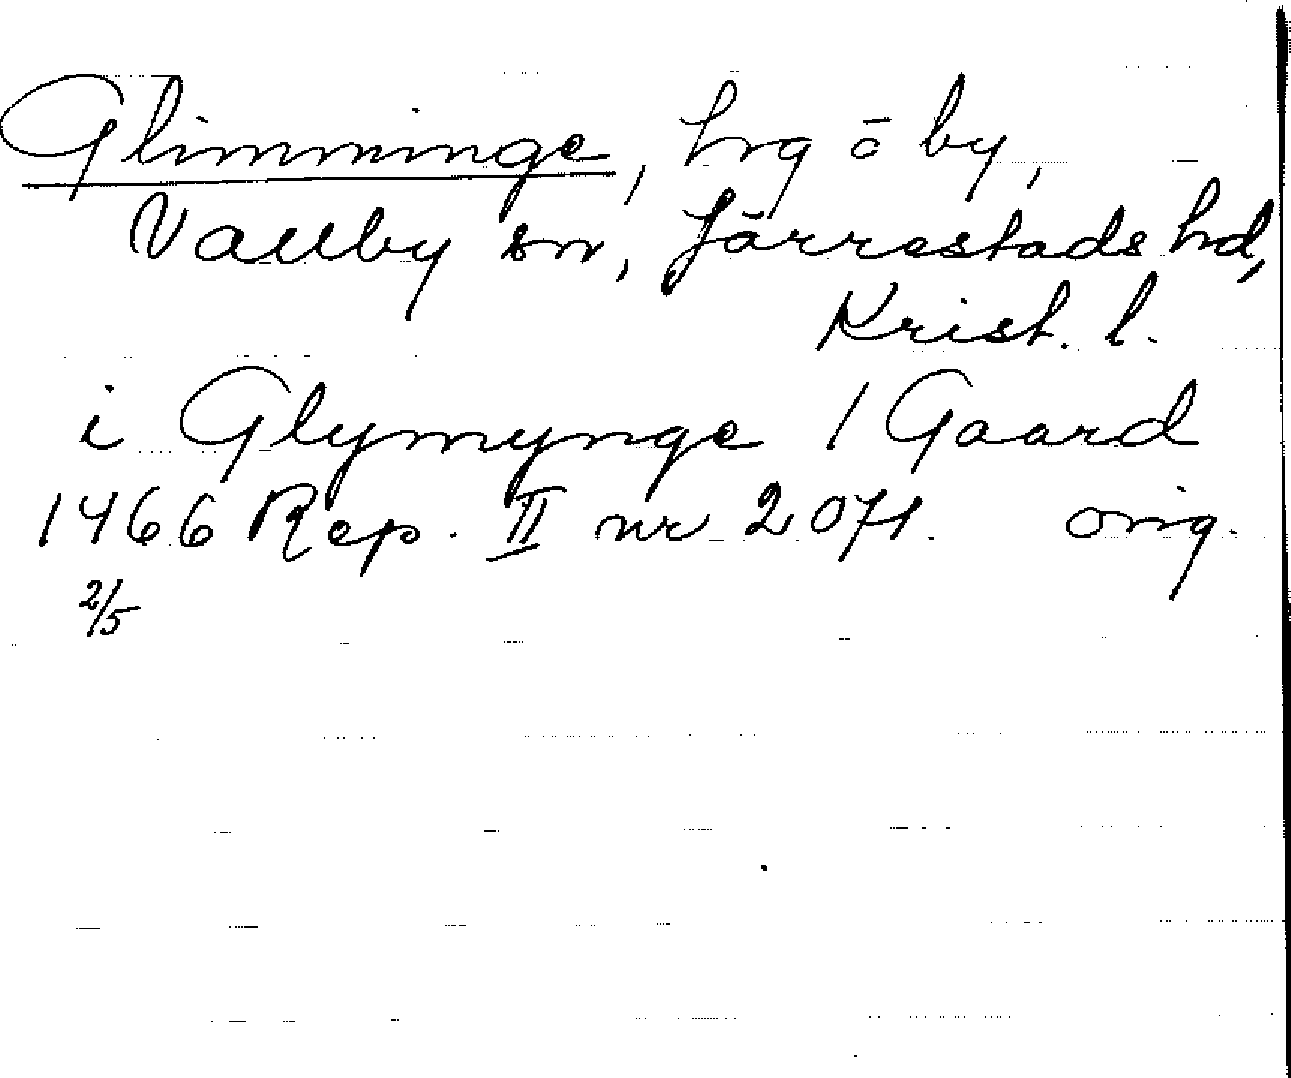 Glimminge, hrg ō by,
Vallby sn, Järrestads hd,
Krist. l.
i Glymynge 1 Gaard
1466 Rep. II nr 2071. orig.
2/5